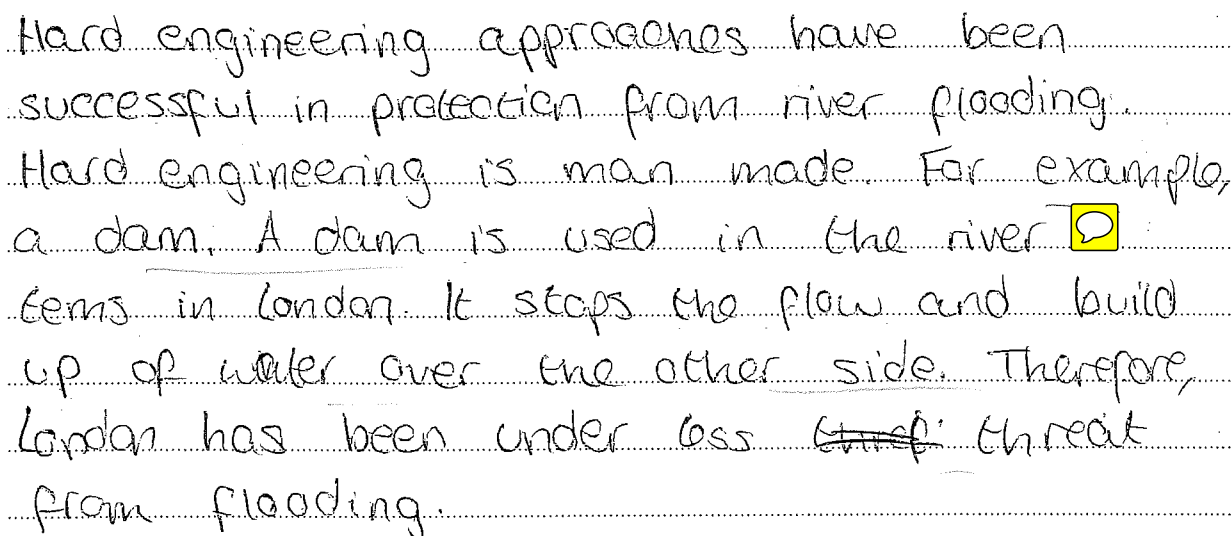 Hard engineering approaches have been
successful in protection from river flooding.
Hard engineering is man made. For example,
a dam. A dam is used in the river
tems in London. It stops the flow and build
up of water over the other side. Therefore,
London has been under less threat
from flooding.